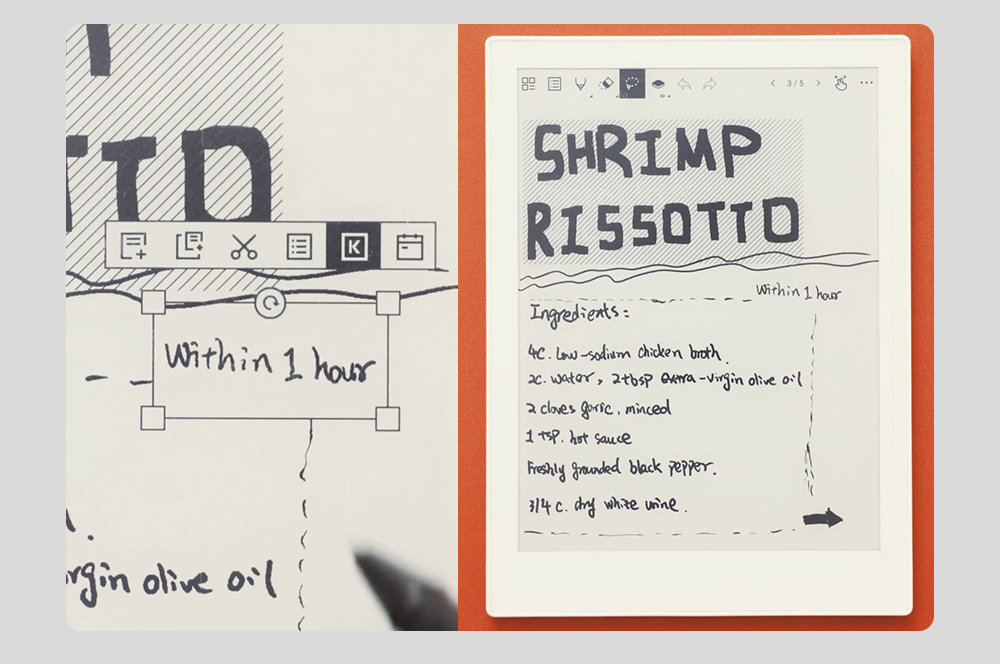 K
Within 1 hour
rgin olive oil
3/5
SHRIMP
RISSOTTO
Within 1 hour
Ingredients:
4c. Low-sodium chicken broth.
2c. water, 2tbsp extra-virgin olive oil
2 cloves garlic, minced
1 tsp. hot sauce
Freshly grounded black pepper.
3/4 c. dry white wine.